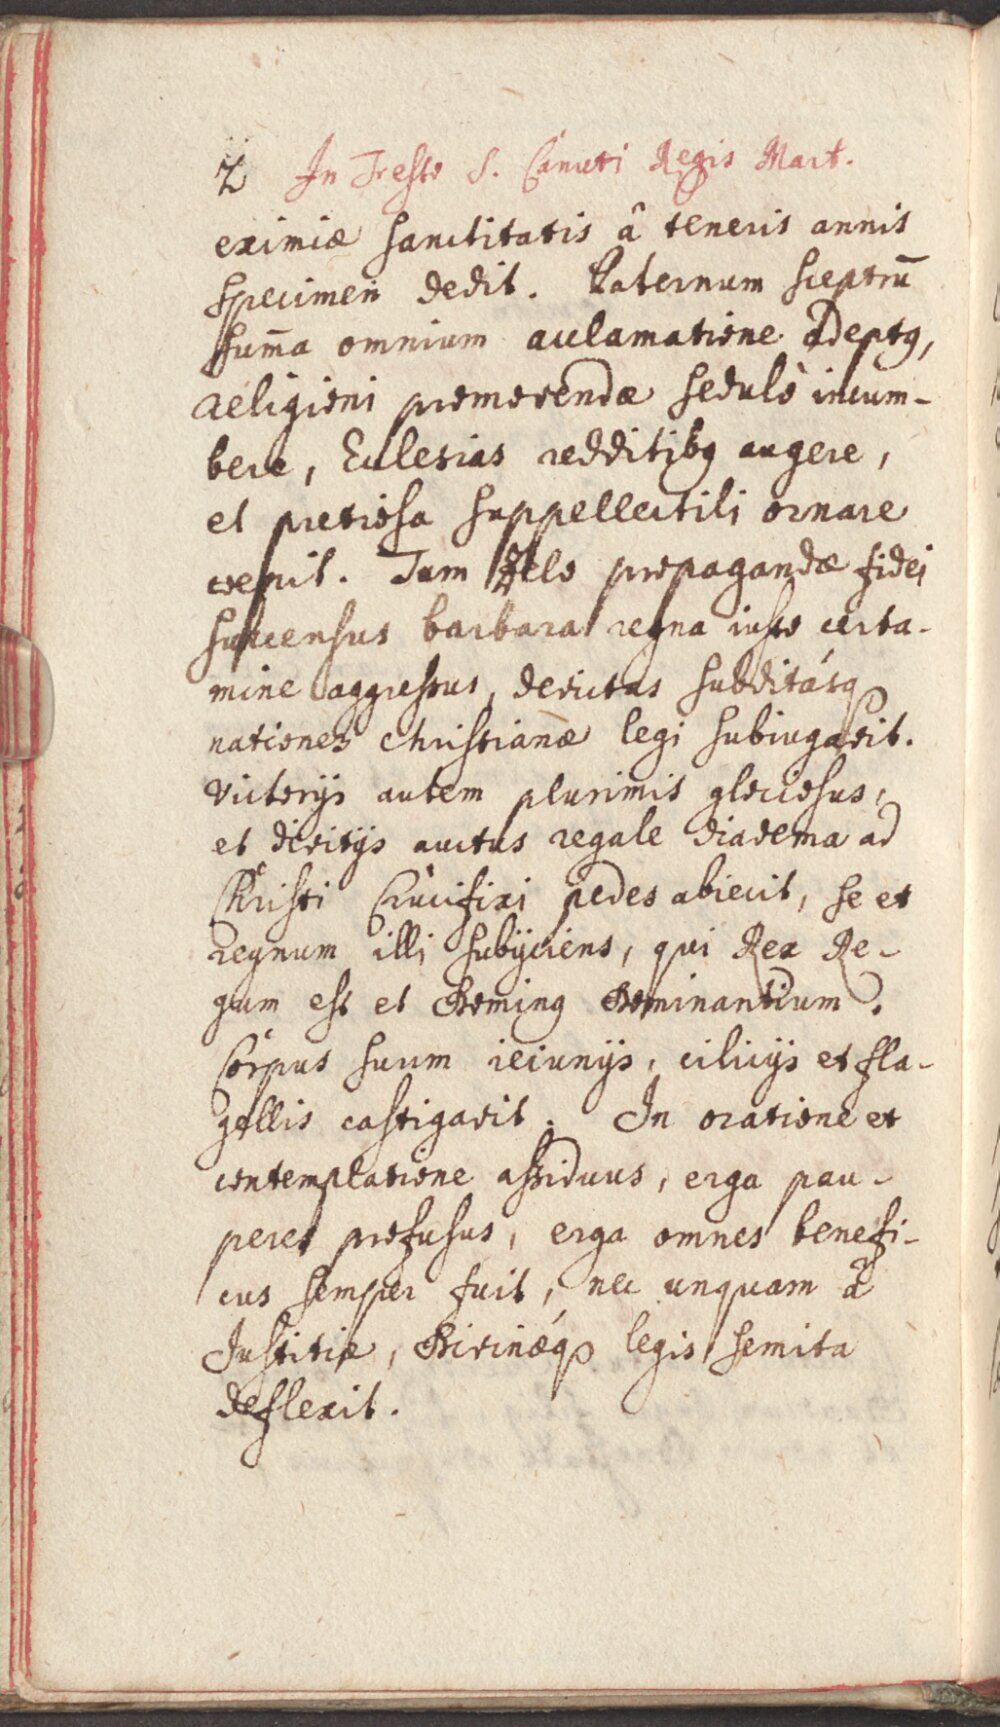 2 In Festo S. Canuti Regis Mart.
eximiæ sanctitatis â teneris annis
specimen dedit. Paternum sceptrū
sum̄a omnium acclamatione adeptꝰ,
Religioni promovendæ sedulò incum-
bere, Ecclesias redditibꝰ augere,
et pretiosa suppellectili ornare
coepit. Tum zelo propagandæ fidei
succensus barbara regna iusto certa-
mine aggressus, devictas subditásq
nationes christianæ legi subiugavit.
Victorijs autem plurimis gloriosus,
et divitijs auctus regale diadema ad
Christi Crucifixi pedes abiecit, se et
regnum illi subijciens, qui Rex Re-
gum est et Dominꝰ Dominantium.
Corpus suum ieiunijs, cilicijs et fla-
gellis castigavit. In oratione et
contemplatione assiduus, erga pau-
peres profusus, erga omnes benefi-
cus semper fuit, nec unquam â
Justitiæ, Divinǽqꝫ legis semita
deflexit.